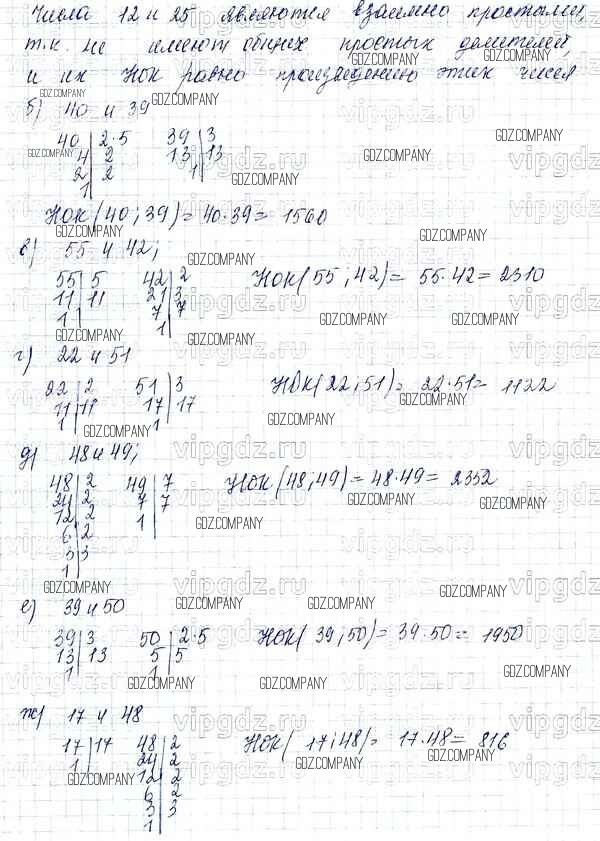 Числа 12 и 25 являются взаимно простыми,
т.к. не имеют общих простых делителей,
и их НОК равно произведению этих чисел
б) 40 и 39
40 | 2·5 39 | 3
4 | 2 13 | 13
2 | 2 1 |
1 |
НОК (40; 39) = 40·39 = 1560
в) 55 и 42;
55 | 5 42 | 2 НОК (55; 42) = 55·42 = 2310
11 | 11 21 | 3
1 | 7 | 7
1 |
г) 22 и 51
22 | 2 51 | 3 НОК (22; 51) = 22·51 = 1122
11 | 11 17 | 17
1 | 1 |
д) 48 и 49;
48 | 2 49 | 7 НОК (48; 49) = 48·49 = 2352
24 | 2 7 | 7
12 | 2 1 |
6 | 2
3 | 3
1 |
е) 39 и 50
39 | 3 50 | 2·5 НОК (39; 50) = 39·50 = 1950
13 | 13 5 | 5
1 | 1 |
ж) 17 и 48
17 | 17 48 | 2 НОК (17; 48) = 17·48 = 816
1 | 24 | 2
12 | 2
6 | 2
3 | 3
1 |
GDZ.COMPANY
vipgdz.ru